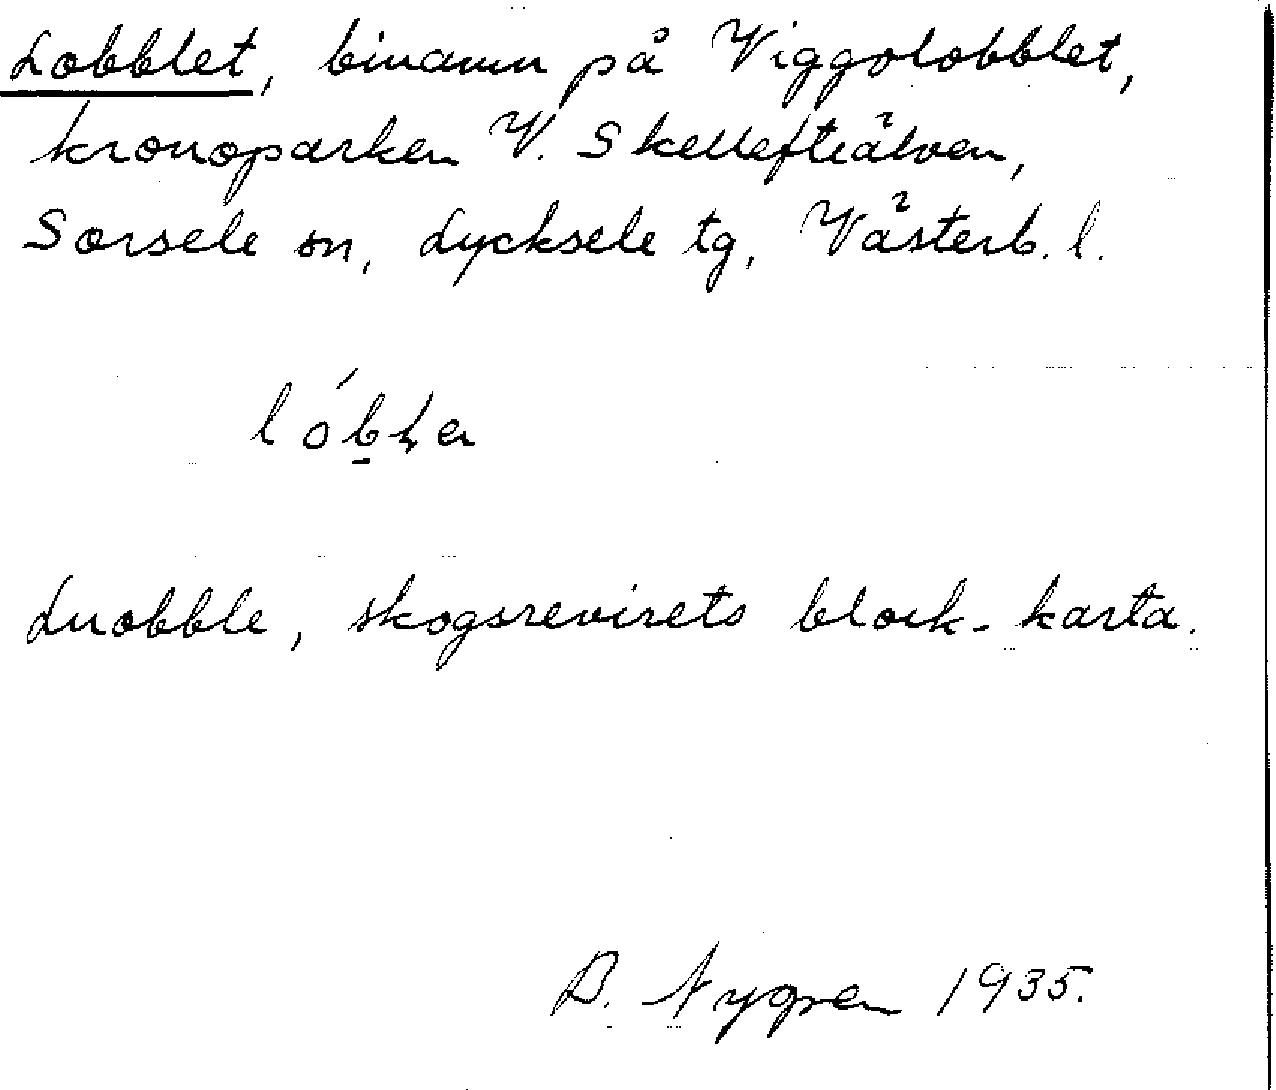 Lobblet, binamn på Viggolobblet,
kronoparken V. Skellefteälven,
Sorsele sn, Lycksele tg, Västerb. l.
Luobble, skogsrevirets block-karta.
D. Nygren 1935.